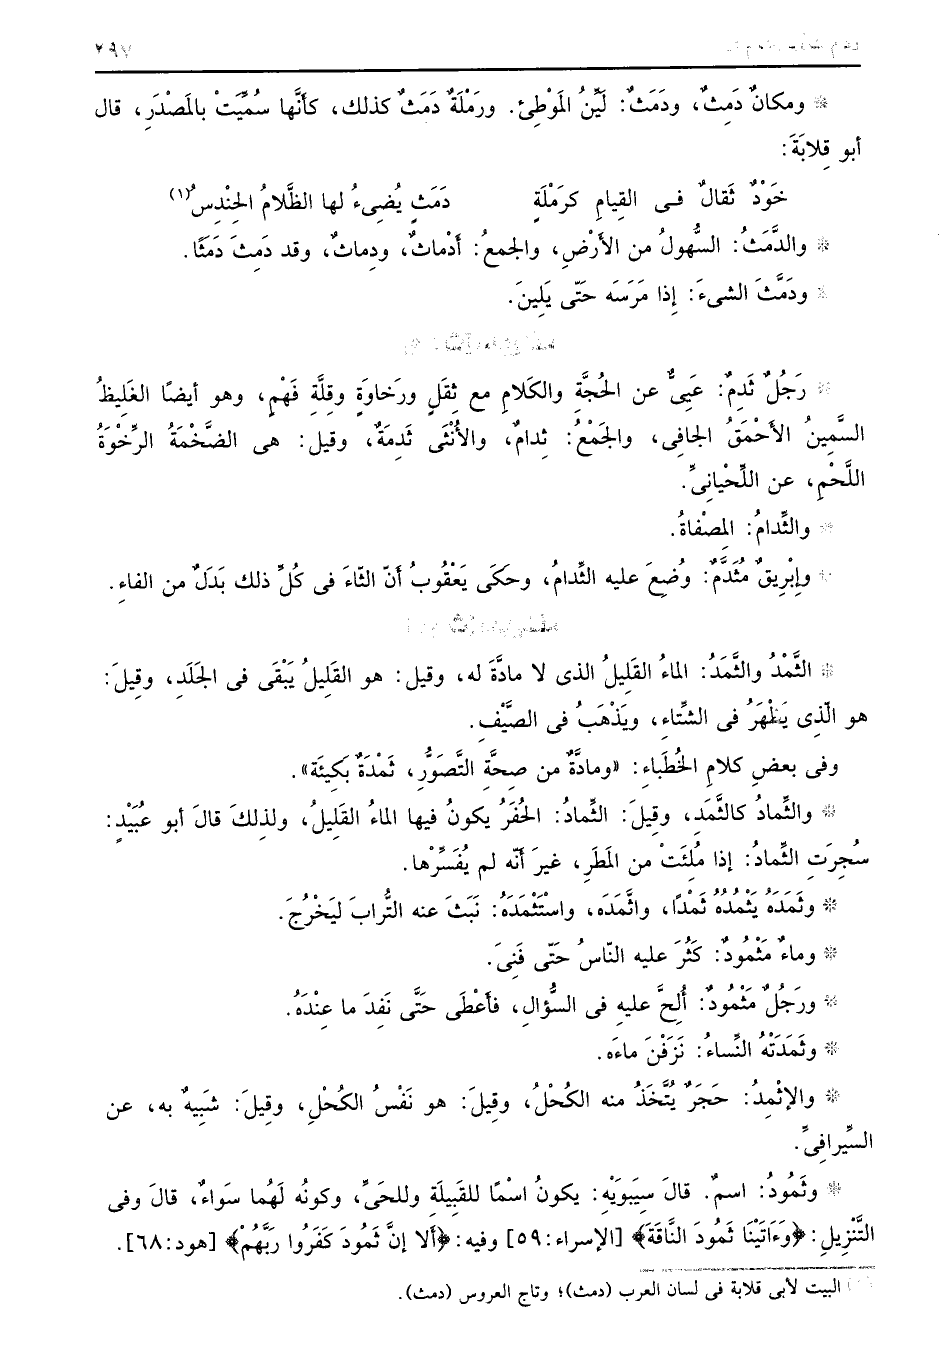 ٢٩٧
* ومكانٌ دَمِثٌ، ودَمَثٌ: لَيِّنُ المَوْطِئ. ورَمْلَةٌ دَمَثٌ كذلك، كأنَّها سُمِّيَتْ بالمَصْدَرِ، قال
أبو قِلابَةَ:
خَوْدٌ ثَقالٌ فى القِيامِ كرَمْلَةٍ دَمَثٍ يُضِىءُ لها الظَّلامُ الحِنْدِسُ(١)
* والدَّمَثُ: السُّهولُ من الأَرْضِ، والجمعُ: أَدْماثٌ، ودِماثٌ، وقد دَمِثَ دَمَثًا.
* ودَمَّثَ الشىءَ: إذا مَرَسَه حَتّى يَلِينَ.
* رَجُلٌ ثَدِمٌ: عَيِىٌّ عن الحُجَّةِ والكَلامِ مع ثِقَلٍ ورَخاوَةٍ وقِلَّةِ فَهْمٍ، وهو أيضًا الغَلِيظُ
السَّمِينُ الأَحْمَقُ الجافِى، والجَمْعُ: ثِدامٌ، والأُنْثَى ثَدِمَةٌ، وقيل: هى الضَّخْمَةُ الرِّخْوَةُ
اللَّحْمِ، عن اللِّحْيانِىِّ.
* والثِّدامُ: المِصْفاةُ.
* وإِبْرِيقٌ مُثَدَّمٌ: وُضِعَ عليه الثِّدامُ، وحكَى يَعْقُوبُ أنّ الثّاءَ فى كُلِّ ذلك بَدَلٌ من الفاء.
* الثَّمْدُ والثَّمَدُ: الماءُ القَلِيلُ الذى لا مادَّةَ له، وقيل: هو القَلِيلُ يَبْقَى فى الجَلَدِ، وقِيلَ:
هو الَّذِى يَظْهَرُ فى الشِّتاءِ، ويَذْهَبُ فى الصَّيْفِ.
وفى بعضِ كلامِ الخُطَباءِ: «ومادَّةٌ من صِحَّةِ التَّصَوُّرِ، ثَمْدَةٌ بَكِيئَة».
* والثِّمادُ كالثَّمَدِ، وقِيلَ: الثِّمادُ: الحُفَرُ يكونُ فيها الماءُ القَلِيلُ، ولذلكَ قالَ أبو عُبَيْدٍ:
سُجِرَتِ الثِّمادُ: إذا مُلِئَتْ من المَطَرِ، غيرَ أنّه لم يُفَسِّرْها.
* وثَمَدَهُ يَثْمُدُهُ ثَمْدًا، واثَّمَدَه، واسْتَثْمَدَهُ: نَبَثَ عنه التُّرابَ ليَخْرُجَ.
* وماءٌ مَثْمُودٌ: كَثُرَ عليه النّاسُ حَتّى فَنِىَ.
* ورَجُلٌ مَثْمُودٌ: أُلِحَّ عليهِ فى السُّؤالِ، فأَعْطَى حَتَّى نَفِدَ ما عِنْدَهُ.
* وثَمَدَتْهُ النِّساءُ: نَزَفْنَ ماءَه.
* والإثْمِدُ: حَجَرٌ يُتَّخَذُ منه الكُحْلُ، وقِيلَ: هو نَفْسُ الكُحْلِ، وقِيلَ: شَبِيهٌ به، عن
السِّيرافِىِّ.
* وثَمُودُ: اسمٌ. قالَ سِيبَوَيْهِ: يكونُ اسْمًا للقَبِيلَةِ وللحَىِّ، وكونُه لَهُما سَواءٌ، قالَ وفى
التَّنْزِيلِ: ﴿وَءَاتَيْنَا ثَمُودَ النَّاقَةَ﴾ [الإسراء:٥٩] وفيه: ﴿أَلا إنَّ ثَمُودَ كَفَرُوا رَبَّهُمْ﴾ [هود:٦٨].
البيت لأبى قلابة فى لسان العرب (دمث)؛ وتاج العروس (دمث).